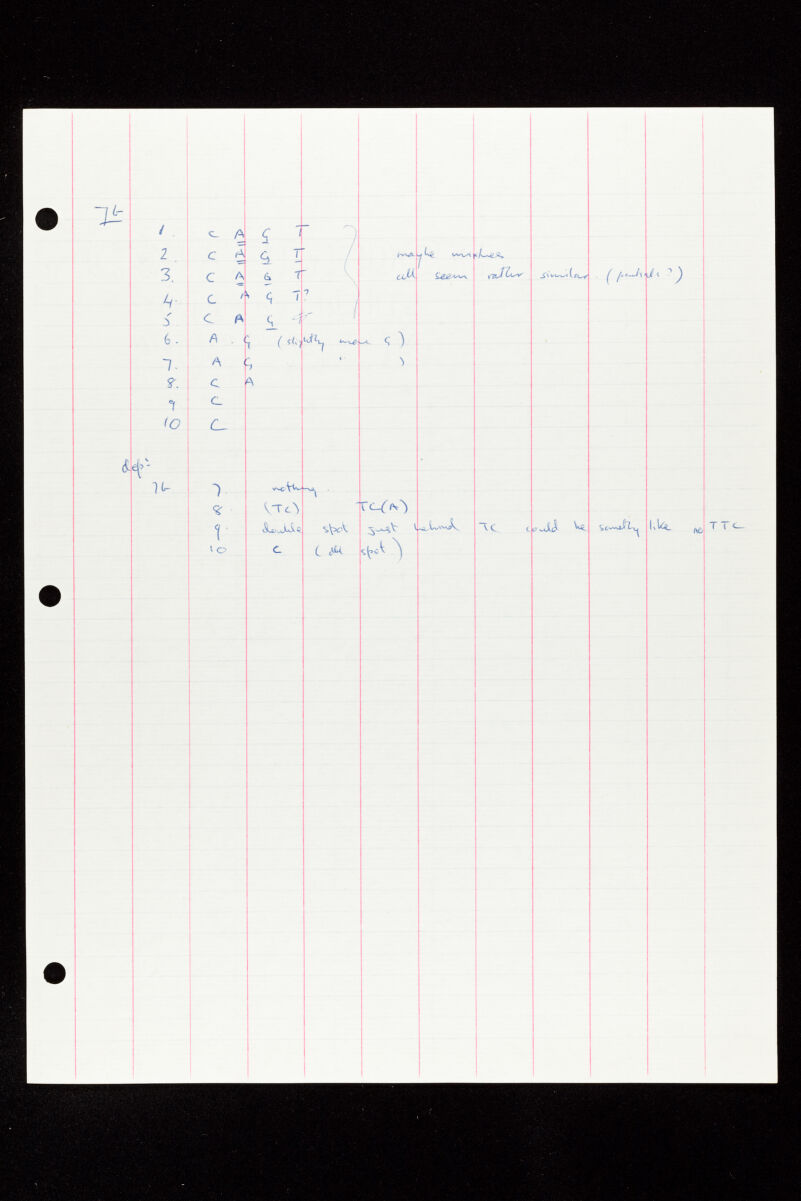 7b
1. C A G T
2. C A G T maybe mixtures
3. C A G T all seem rather similar. (partials?)
4. C A G T?
5. C A G T
6. A . G (slightly more G)
7. A G ( " )
8. C A
9 C
10 C
dep:
7b 7. nothing.
8 (TC) TC(A)
9. double spot just behind TC could be something like TTC
10 C (dbl spot)